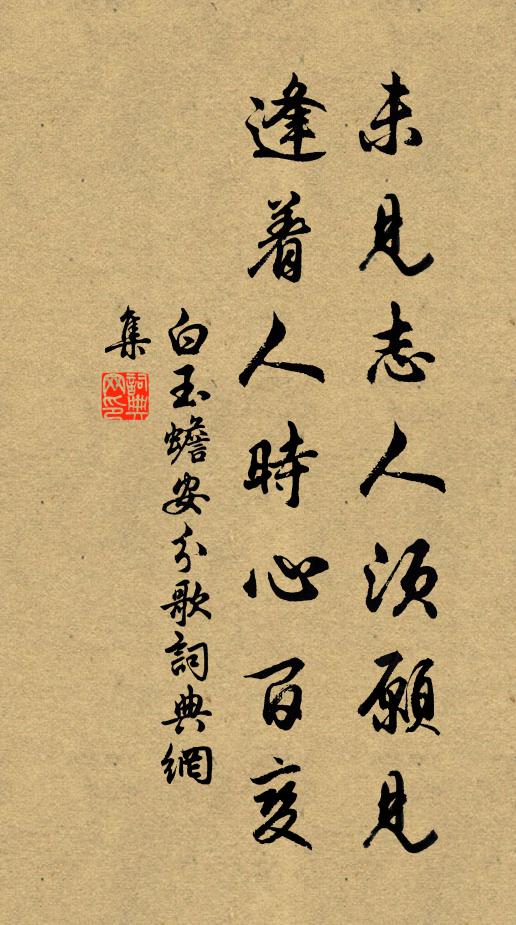 未見志人須願見
逢着人時心百變
白玉蟾安分歌詞典網
集
詞典網印